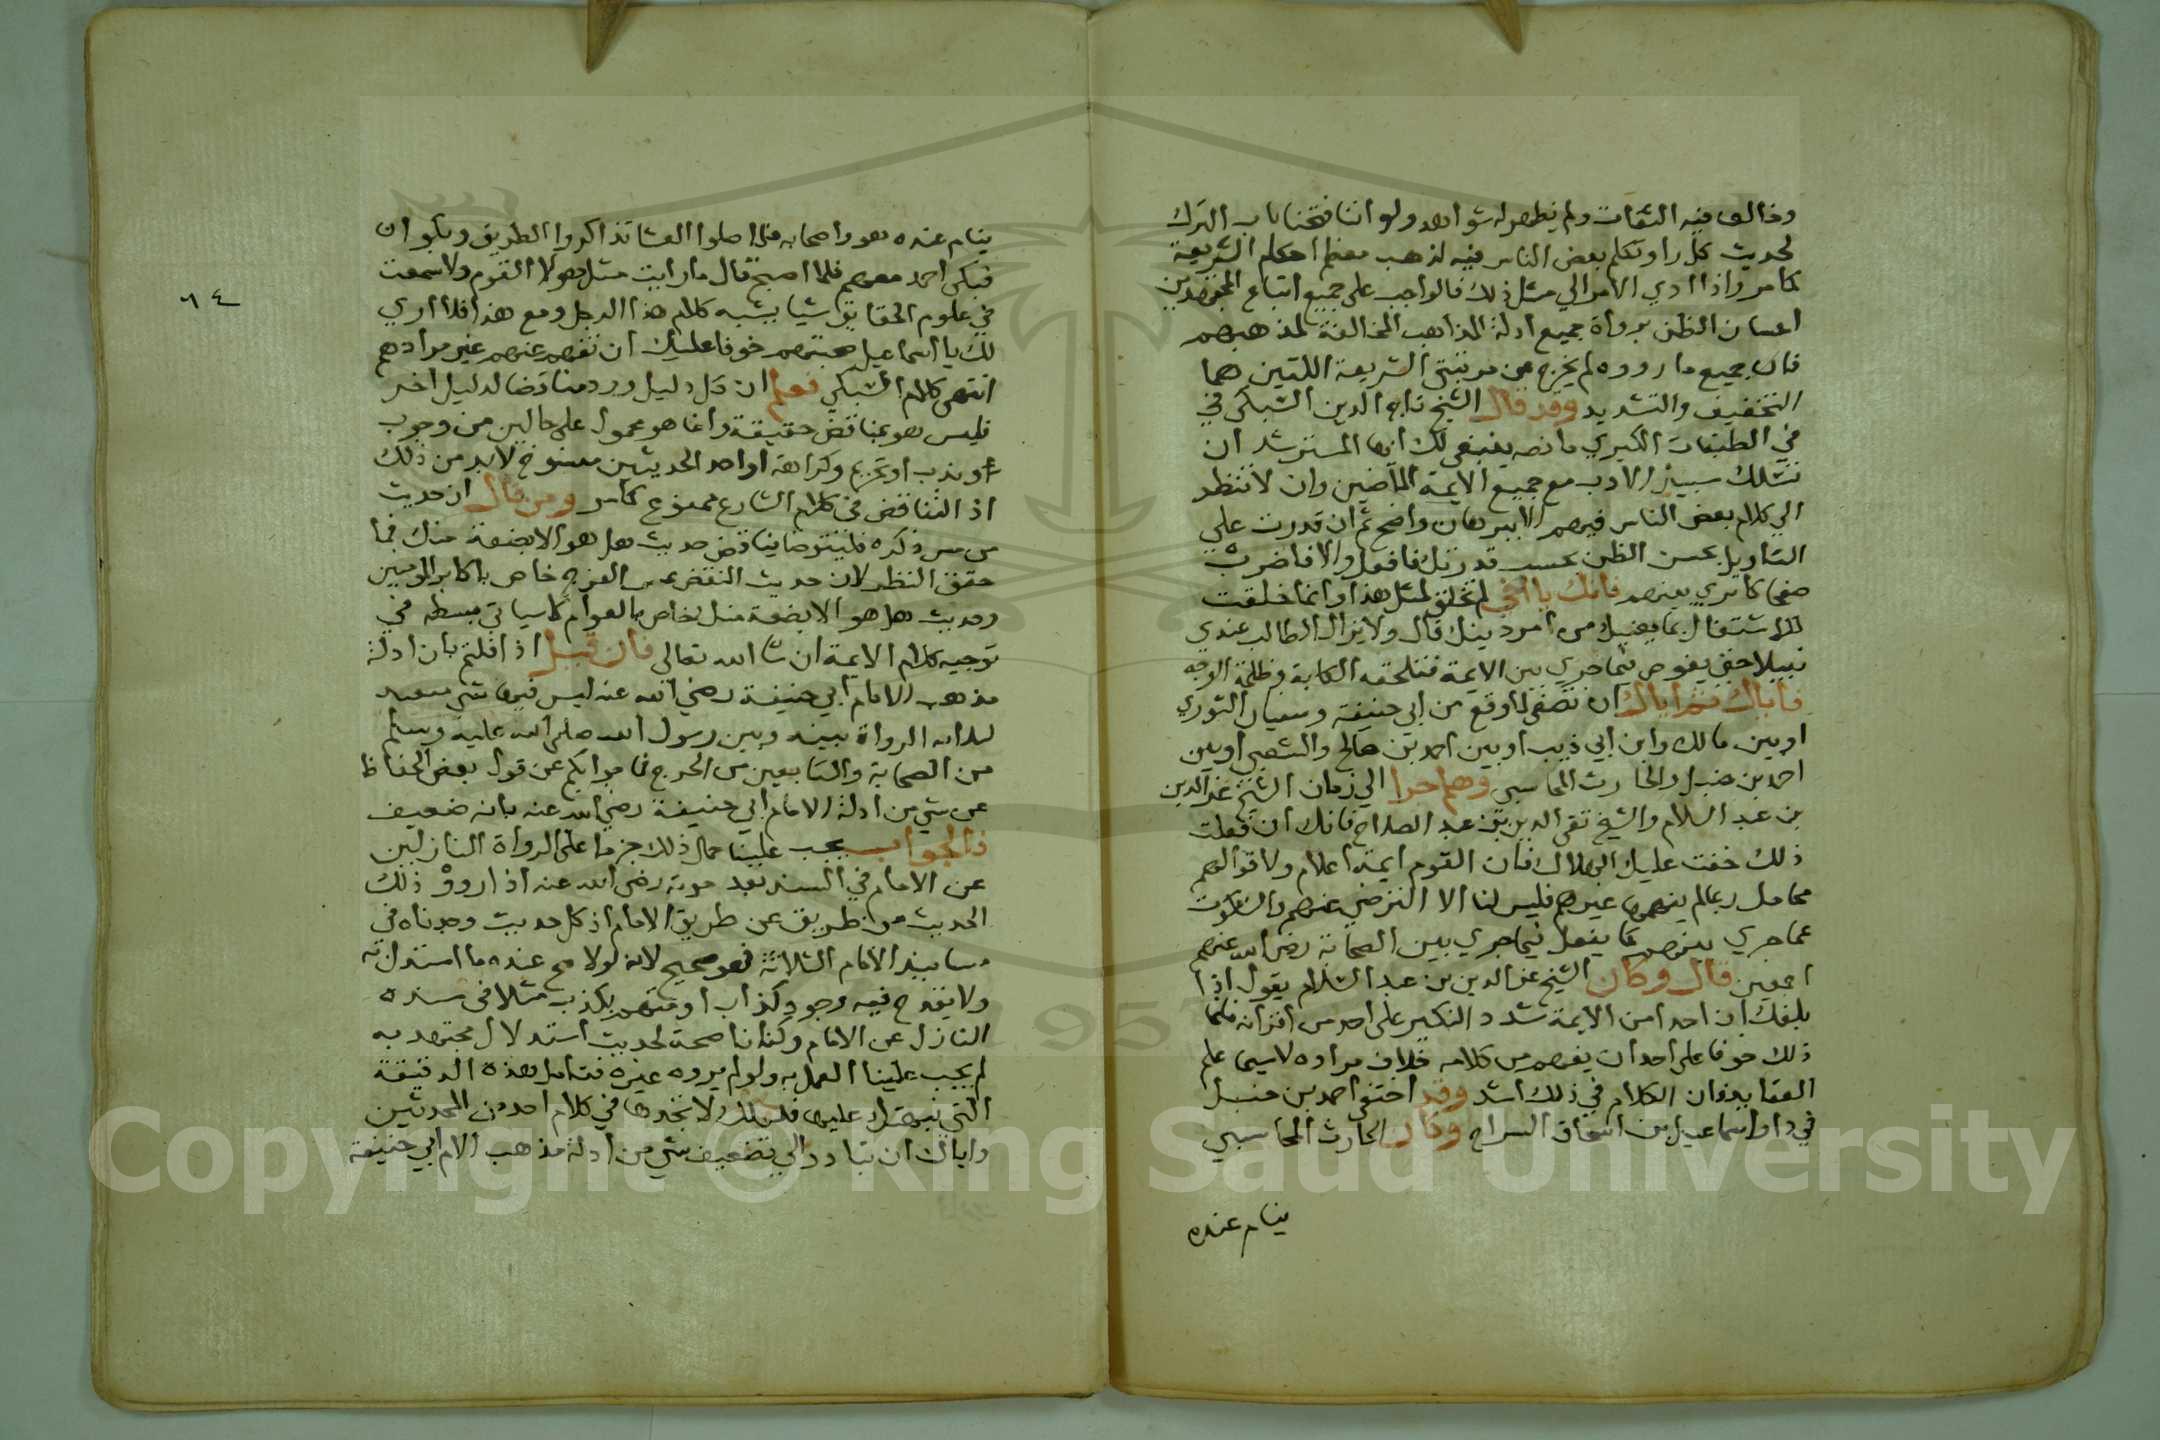 وخالف فيه الثقات ولم يظهر له شواهد ولو اننا فتحنا باب الترك
لحديث كل راو تكلم بعض الناس فيه لذهب معظم احكام الشريعة
كما مر واذا ادي الامر الي مثل ذلك فالواجب علي جميع اتباع المجتهدين
احسان الظن برواة جميع ادلة المذاهب المخالفة لمذهبهم
فان جميع ما رووه لم يخرج عن مرتبتي الشريعة اللتين هما
التخفيف والتشديد وقد قال الشيخ تاج الدين السبكي في
في الطبقات الكبري ما نصه ينبغي لك ايها المسترشد ان
تسلك سبيل الادب مع جميع الايمة الماضين وان لا تنظر
الي كلام بعض الناس فيهم الا ببرهان واضح ثم ان قدرت علي
التاويل بحسن الظن بحسب قدرتك فافعل والا فاضرب
صفحا كما تري بينهم فانك يا اخي لم تخلق لمثل هذا وانما خلقت
للاشتغال بما يعنيك من امر دينك قال ولا يزال الطالب عندي
نبيلا حتي يخوض فيما جري بين الايمة فتلحقه الكابة وظلمة الوجه
فاياك ثم اياك ان تصغي لما وقع بين ابي حنيفة وسفيان الثوري
او بين مالك وابن ابي ذيب او بين احمد بن صالح والشعبي او بين
احمد بن حنبل والحارث المحاسبي وهلم جرا الي زمان الشيخ عز الدين
بن عبد السلام والشيخ تقي الدين بن عبد الصلاح فانك ان فعلت
ذلك خفت عليك الهلاك فان القوم ايمة اعلام ولاقوالهم
محامل ربما لم يفهمها غيرهم فليس لنا الا الترضي عنهم والسكوت
عما جري بينهم كما يفعل فيما جري بين الصحابة رضي الله عنهم
اجمعين قال وكان الشيخ عز الدين بن عبد السلام يقول اذا
بلغك ان احدا من الايمة شدد النكير علي احد من اقرانه فانما
ذلك خوفا علي احد ان يفهم من كلامه خلاف مراده لا سيما علم
العقايد فان الكلام في ذلك اشد وقد اختفي احمد بن حنبل
في دار اسماعيل بن اسحاق السراج وكان الحارث المحاسبي
ينام عنده
٦٤
ينام عنده هو واصحابه فلما صلوا العشا تذاكروا الطريق وبكوا ان
فبكي احمد معهم فلما اصبح قال ما رايت مثل هولا القوم ولا سمعت
في علوم الحقايق شيا يشبه كلام هذا الرجل ومع هذا فلا اري
لك يا اسماعيل صحبتهم خوفا عليك ان تفهم عنهم غير مرادهم
انتهي كلام السبكي فعلم ان كل دليل ورد مناقضا لدليل اخر
فليس هو بمناقض حقيقة وانما هو محمول علي حالين من وجوب
او ندب او تحريم وكراهة او احد الحديثين منسوخ لا بد من ذلك
اذ التناقض في كلام الشارع ممنوع كما مر ومن قال ان حديث
من مس ذكره فليتوضا يناقض حديث هل هو الا بضعة منك فما
حقق النظر لان حديث النقض بمس الفرج خاص باكابر المومنين
وحديث هل هو الا بضعة منك خاص بالعوام كما سياتي بسطه في
توجيه كلام الايمة ان شا الله تعالي فان قيل اذا قلتم بان ادلة
مذهب الامام ابي حنيفة رضي الله عنه ليس فيها شي ضعيف
لسلامة الرواة بينه وبين رسول الله صلي الله عليه وسلم
من الصحابة والتابعين من الجرح فما جوابكم عن قول بعض الحفاظ
عن شي من ادلة الامام ابي حنيفة رضي الله عنه بانه ضعيف
فالجواب يجب علينا حمل ذلك جزما علي الرواة النازلين
عن الامام في السند بعد موته رضي الله عنه اذا رووا ذلك
الحديث من طريق عن طريق الامام اذ كل حديث وجدناه في
مسانيد الامام الثلاثة فهو صحيح لانه لولا صح عنده ما استدل به
ولا يقدح فيه وجود كذاب او متهم بكذب مثلا في سنده
النازل عن الامام وكفانا صحة لحديث استدلال مجتهد به
ثم يجب علينا العمل به ولو لم يروه غيره فتامل هذه الدقيقة
التي نبهتك عليها فلعلك لا تجدها في كلام احد من المحدثين
واياك ان تبادر الي تضعيف شي من ادلة مذهب الامام ابي حنيفة
Copyright © King Saud University
1957